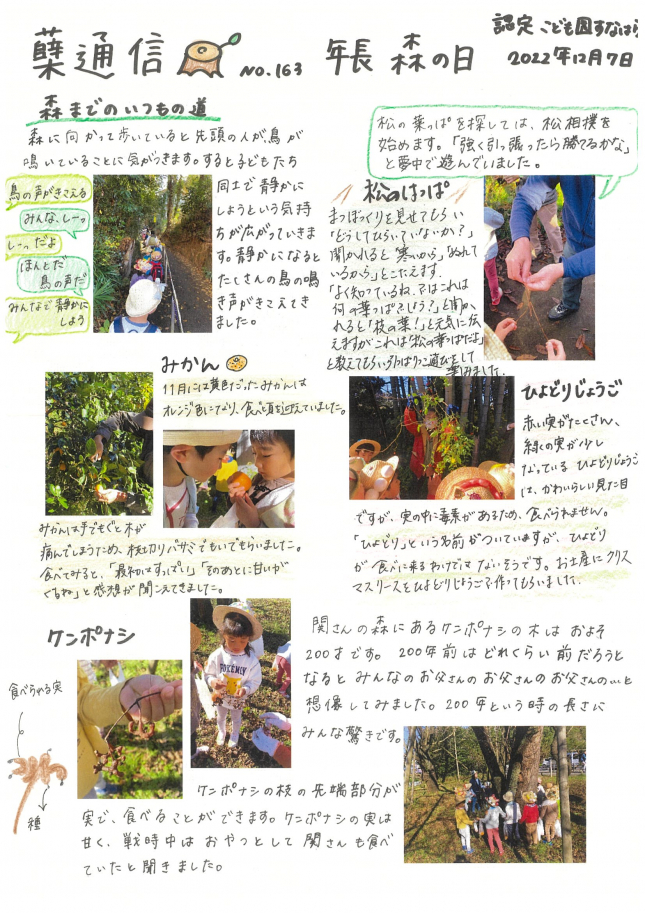 蘖通信 No.163 年長 森の日
認定こども園すなはら
2022年12月7日
森までのいつもの道
森に向かって歩いていると先頭の人が、鳥が
鳴いていることに気がつきます。すると子どもたち
同士で静かに
しようという気持
ちが広がっていきま
す。静かになると
たくさんの鳥の鳴
き声がきこえてき
ました。
鳥の声がきこえる
みんな、しーッ
しーっだよ
ほんとだ
鳥の声だ
みんなで静かに
しよう
松の葉っぱを探しては、松相撲を
始めます。「強く引っ張ったら勝てるかな」
と夢中で遊んでいました。
松のはっぱ
まつぼっくりを見せてもらい
「どうしてひらいていないか?」
聞かれると「寒いから」「ぬれて
いるから」とこたえます。
「よく知っているね。?はこれは
何の葉っぱ?でしょう?」と聞か
れると!「枝の葉!」と元気に伝
えますがこれは「松の葉っぱだよ」
と教えてもらい引っぱりっこ遊びをして
楽しみました。
みかん
11月には黄色だったみかんは
オレンジ色になり、食べ頃を迎えていました。
みかんは手でもぐと木が
痛んでしまうため、枝切りバサミでもいでもらいました。
食べてみると、「最初はすっぱい」「そのあとに甘いが
くるね」と感想が聞こえてきました。
ひよどりじょうご
赤い実がたくさん、
緑の実が少し
なっているひよどりじょうご
は、かわいらしい見た目
ですが、実の中に毒素があるため、食べられません。
「ひよどり」という名前がついていますが、ひよどり
が食べに来るわけではないそうです。お土産にクリス
マスリースをひよどりじょうごで作ってもらいました。
ケンポナシ
食べられる実
種
関さんの森にあるケンポナシの木はおよそ
200才です。200年前はどれくらい前だろうと
なるとみんなのお父さんのお父さんのお父さんの…と
想像してみました。200年という時の長さに
みんな驚きです。
ケンポナシの枝の先端部分が
実で、食べることができます。ケンポナシの実は
甘く、戦時中はおやつとして関さんも食べ
ていたと聞きました。